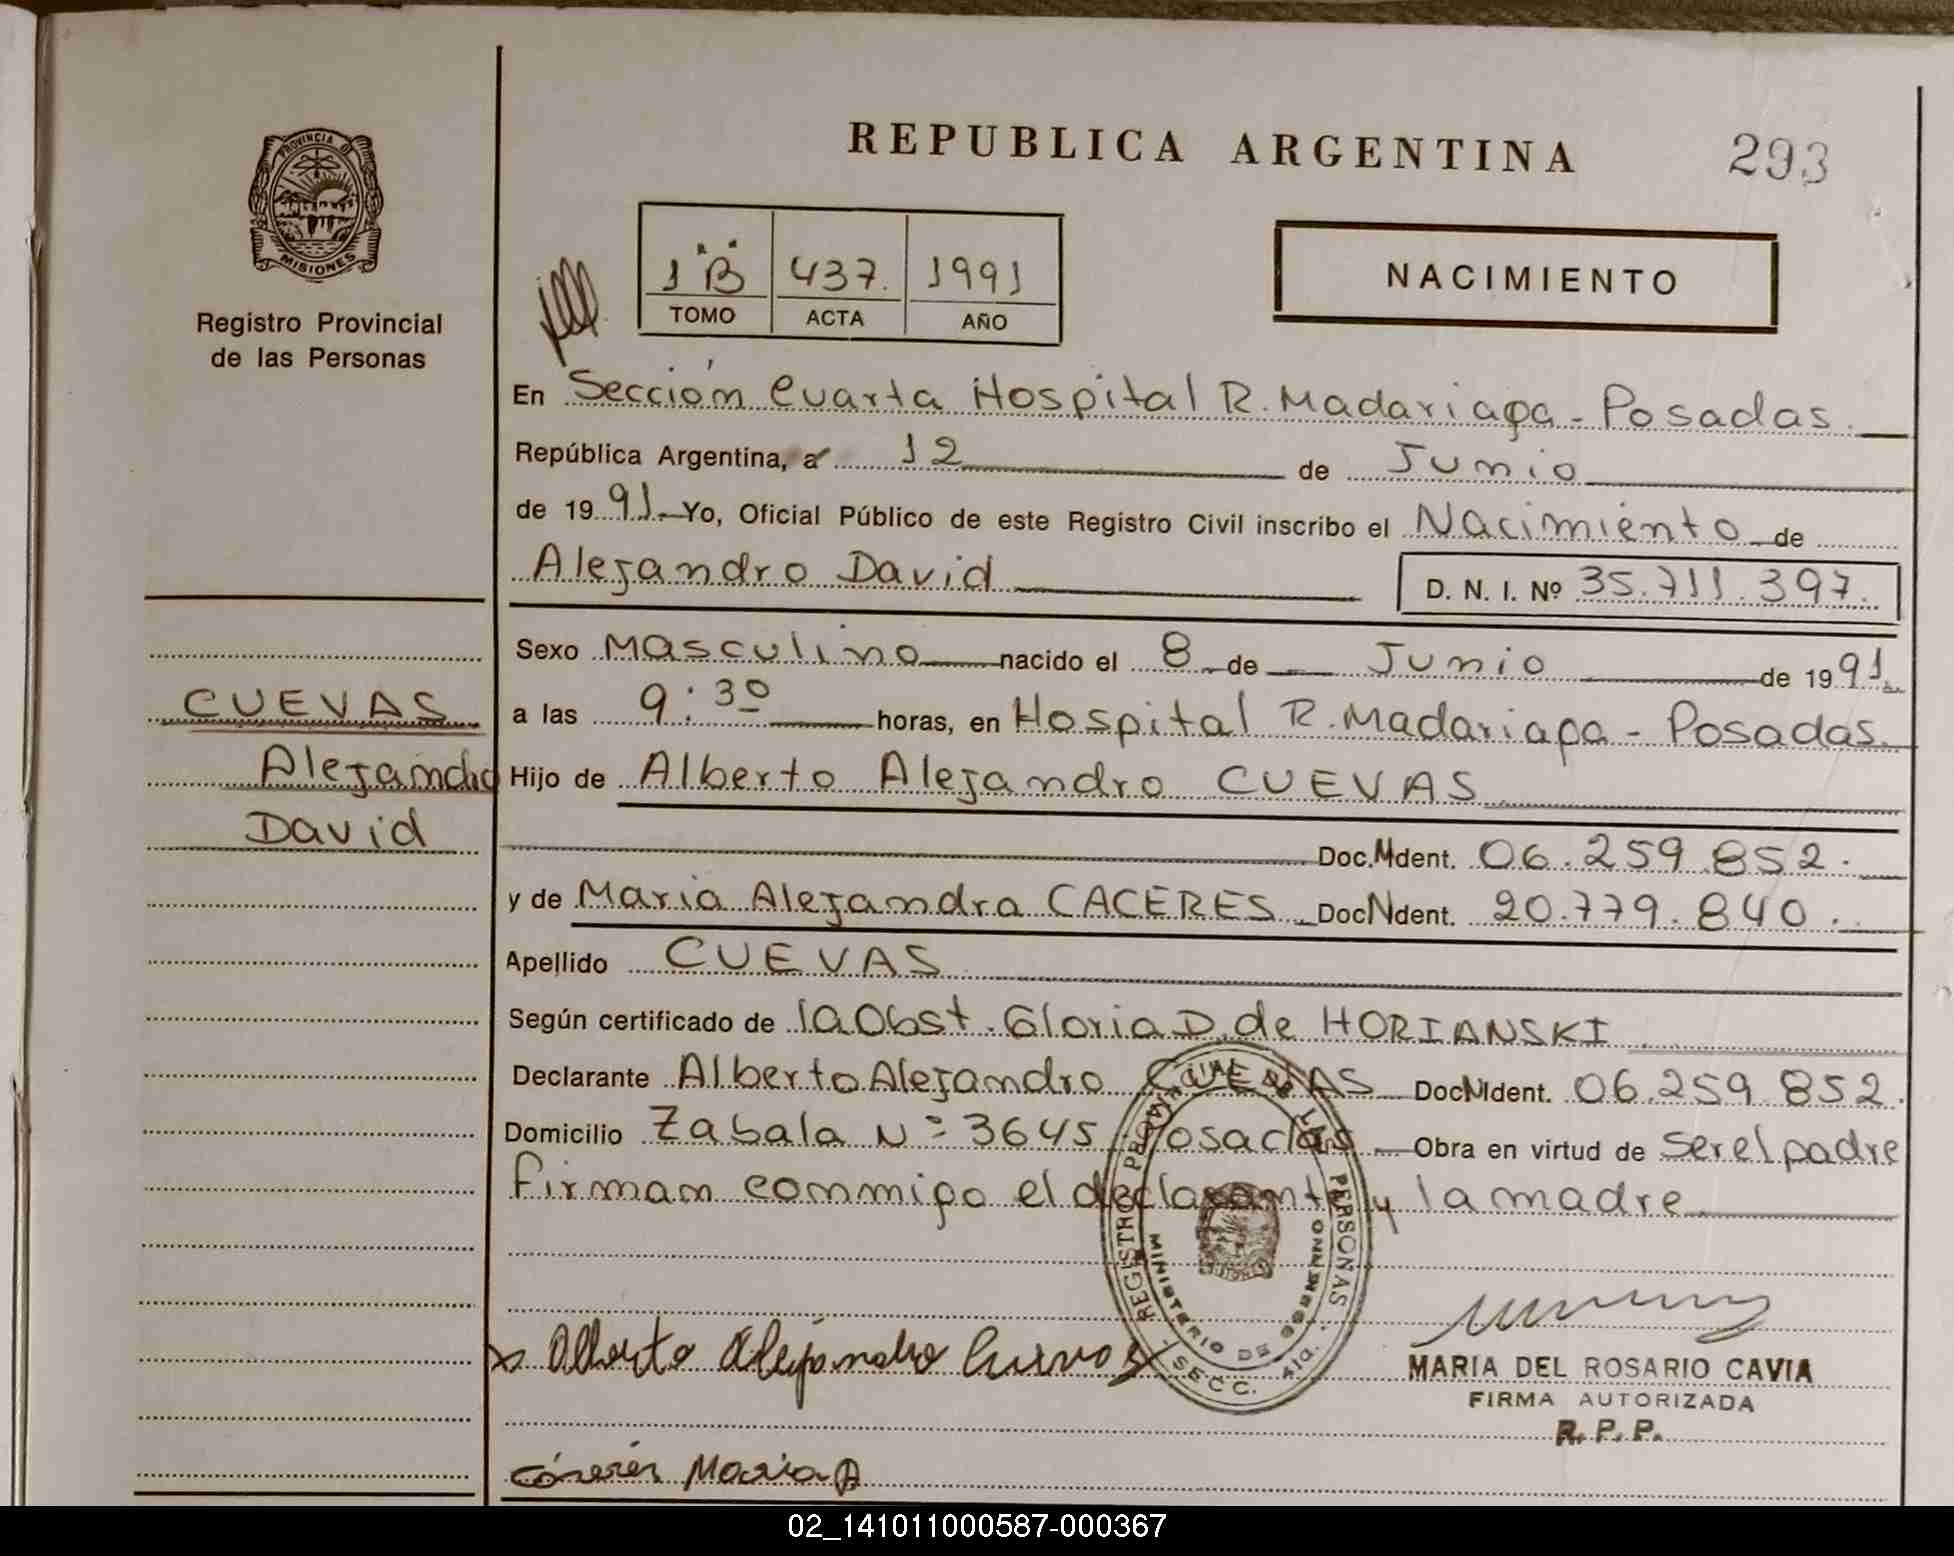 REPUBLICA ARGENTINA
293
PROVINCIA D
MISIONES
Registro Provincial
de las Personas
1 "B" 437. 1991
TOMO ACTA AÑO
NACIMIENTO
En Sección Cuarta Hospital R. Madariaga - Posadas.
República Argentina, a 12 de Junio
de 1991. Yo, Oficial Público de este Registro Civil inscribo el Nacimiento de
Alejandro David
D. N. I. Nº 35.711.397.
Sexo Masculino nacido el 8 de Junio de 1991.
a las 9:30 horas, en Hospital R. Madariaga - Posadas.
CUEVAS
Alejandro
David
Hijo de Alberto Alejandro CUEVAS
Doc. Ident. 06.259.852.
y de Maria Alejandra CACERES Doc Ident. 20.779.840.
Apellido CUEVAS
Según certificado de la Obst. Gloria D. de HORIANSKI
Declarante Alberto Alejandro CUEVAS Doc Ident. 06.259.852.
Domicilio Zabala Nº 3645 Posadas Obra en virtud de ser el padre
Firman conmigo el declarante y la madre
REGISTRO PROVINCIAL DE LAS PERSONAS
MINISTERIO DE GOBIERNO
SECC. 4ta.
x Alberto Alejandro Cuevas
MARIA DEL ROSARIO CAVIA
FIRMA AUTORIZADA
R. P. P.
Cáceres Maria A
02_141011000587-000367